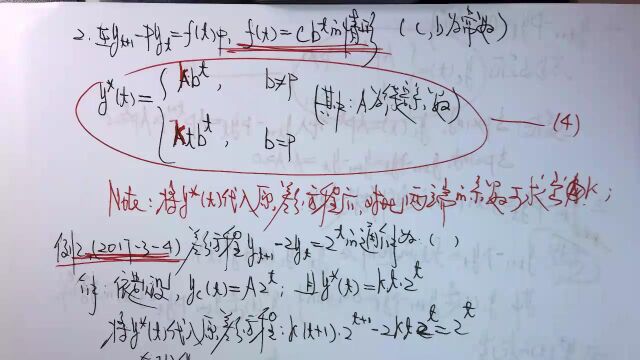 2. 在y_{t+1}-py_t=f(t)中, f(t)=cb^t的情形 (c,b为常数)
y*(t)={ kb^t, b≠p
ktb^t, b=p
(其中:A为待定系数) ——(4)
Note: 将y*(t)代入原差分方程后,对比两端的系数可求常数k;
例2.(2017-3-4) 差分方程y_{t+1}-2y_t=2^t的通解为( )
解: 依题设, y_c(t)=A2^t; 且y*(t)=kt·2^t
将y*(t)代入原差分方程: k(t+1)·2^{t+1}-2kt2^t=2^t